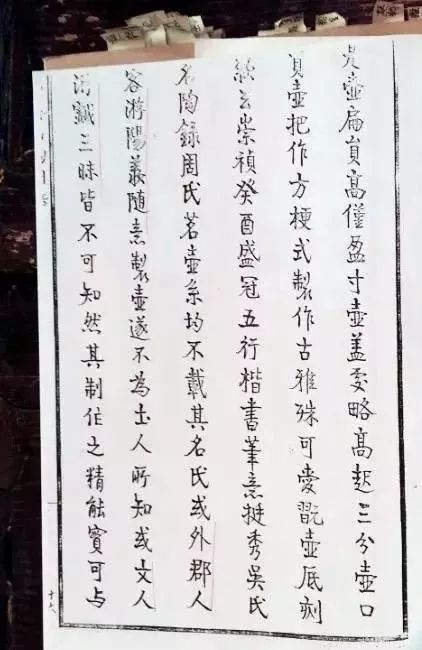 是壺扁員高僅盈寸壺盖處略高起三分壺口
員壺把作方梗式製作古雅殊可愛翫壺底刻
欵云崇禎癸酉盛冠五行楷書筆意挺秀吳氏
名陶錄周氏茗壺系均不載其名氏或外郡人
客游陽羨隨意製壺遂不為土人所知或文人
游戲三昧皆不可知然其制作之精能實可与
十七